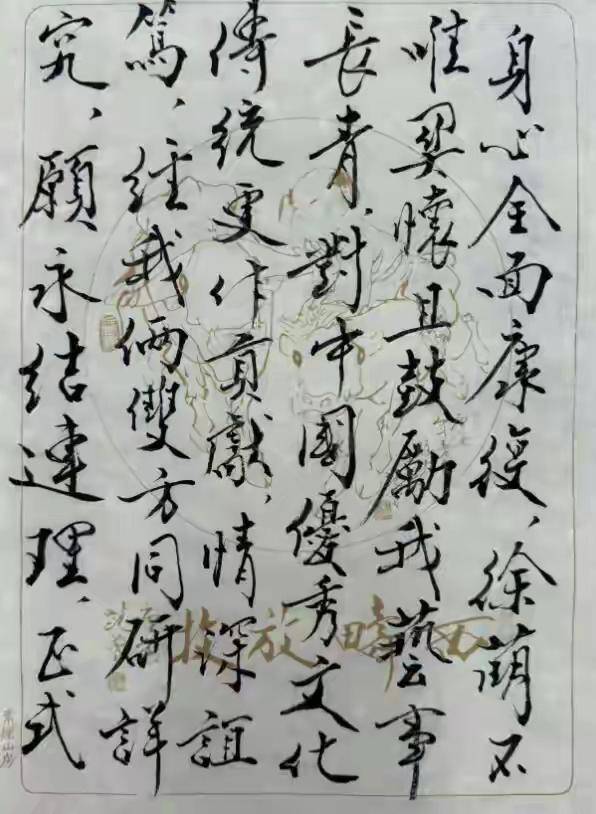 身心全面康復、徐萌不
唯關懷且鼓勵我藝事
長青、對中國優秀文化
傳統更作貢獻、情深誼
篤、經我倆雙方同研詳
究、願永結連理、正式
西疇放牧